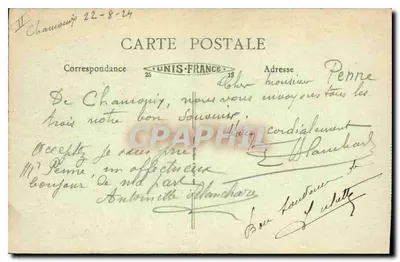 II
Chamonix 22-8-24
CARTE POSTALE
Correspondance
UNIS-FRANCE
Adresse
Cher monsieur Penne
De Chamonix, nous vous envoyons tous les
trois notre bon souvenir.
Bien cordialement
E Blanchard
Acceptez je vous prie
Mr Penne, un affectueux
bonjour de ma part
Antoinette Blanchard
Bon souvenir de
CPARAMA